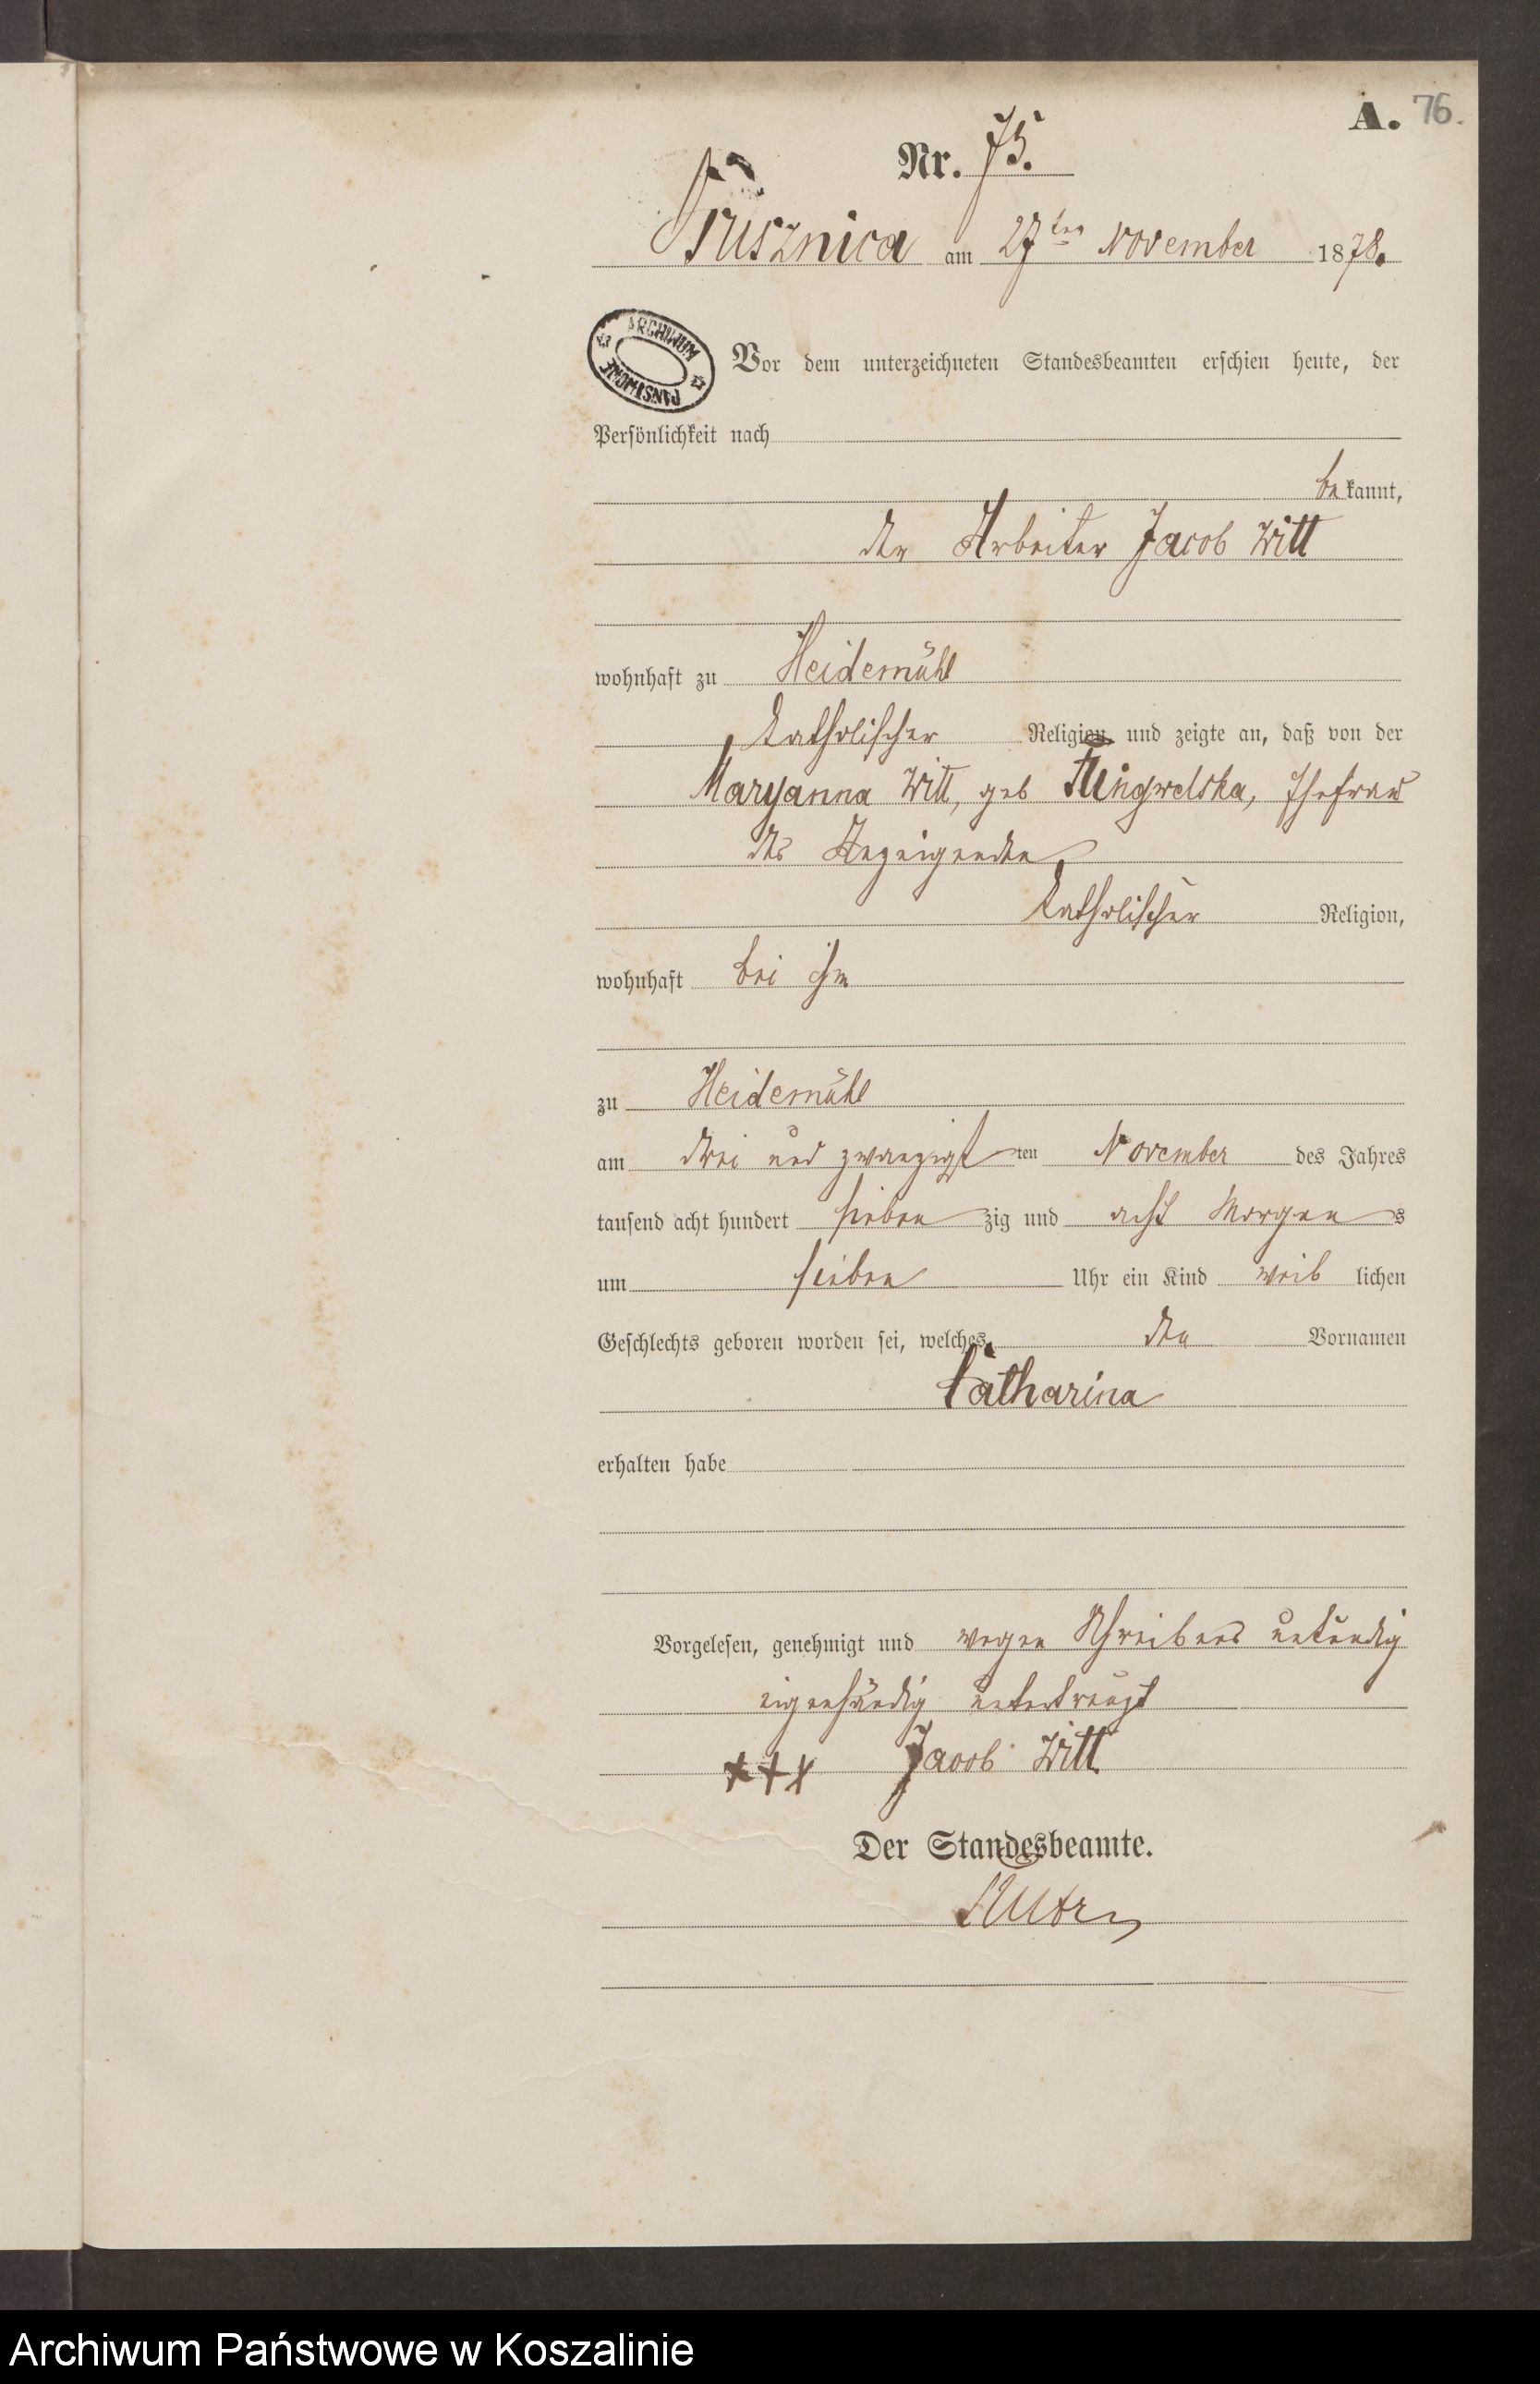 A. 76.
Nr. 75.
Prusznica am 27ten November 1878.
ARCHIWUM PAŃSTWOWE
Vor dem unterzeichneten Standesbeamten erschien heute, der
Persönlichkeit nach
bekannt,
der Arbeiter Jacob Witt
wohnhaft zu Heidemühl
katholischer Religion und zeigte an, daß von der
Maryanna Witt, geb Ehefrau
des Anzeigenden
katholischer Religion,
wohnhaft bei ihm
zu Heidemühl
am drei und zwanzigsten November des Jahres
tausend acht hundert siebenzig und acht Morgens
um sieben Uhr ein Kind weiblichen
Geschlechts geboren worden sei, welches den Vornamen
Catharina
erhalten habe
Vorgelesen, genehmigt und wegen Schreibens unkundig
eigenhändig unterkreuzt
+++ Jacob Witt
Der Standesbeamte.
Archiwum Państwowe w Koszalinie